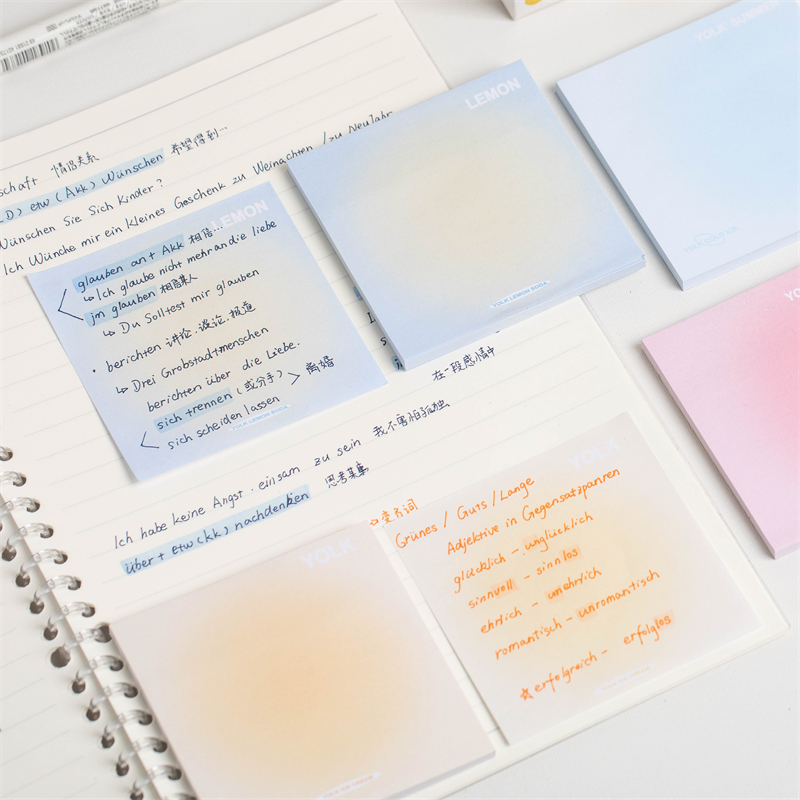 schaft 情侣关系
(D) etw (Akk) Wünschen 希望得到...
Wünschen Sie Sich Kinder?
Ich Wünche mir ein kleines Geschenk zu Weinachten / zu Neujahr
LEMON
glauben an + Akk 相信...
↳ Ich glaube nicht mehr an die liebe
jm glauben 相信某人
↳ Du Solltest mir glauben
• berichten 讲论,谈论,报道
↳ Drei Grobstadtmenschen
berichten über die Liebe.
sich trennen (或分手) > 离婚
sich scheiden lassen
YOLK LEMON SODA
LEMON
YOLK LEMON SODA
YOLK SUMMER
YO
在一段感情中
Ich habe keine Angst. einsam zu sein 我不害怕孤独
über + etw(kk) nachdenken 思考某事
YOLK
YOLK
变名词
Grünes / Guts / Lange
Adjektive in Gegensatzpanren
glücklich - unglücklich
sinnvoll - sinnlos
ehrlich - unehrlich
romantisch - unromantisch
☆ erfolgreich - erfolglos